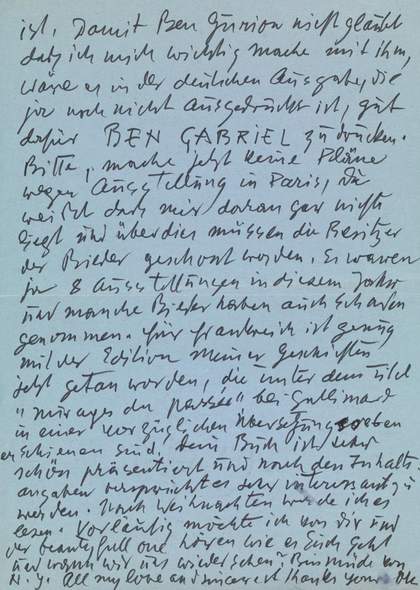 ist. Damit Ben Gurion nicht glaubt
dass ich mich wichtig mache mit ihm,
wäre es in der deutschen Ausgabe, die
ja noch nicht ausgedruckt ist, gut
dafür BEN GABRIEL zu drucken.
Bitte, mache jetzt keine Pläne
wegen Ausstellung in Paris, Du
weisst dass mir daran gar nichts
liegt und überdies müssen die Besitzer
der Bieder geschont werden. Es waren
ja 8 Ausstellungen in diesem Jahr
und manche Bieder haben auch Schaden
genommen. Für Frankreich ist genug
mit der Edition meiner Geschichten
jetzt getan worden, die unter dem Titel
"mirages du passée" bei Gallimard
in einer vorzüglichen Übersetzung soeben
erschienen sind, Dein Buch ist sehr
schön präsentiert und nach den Inhalts-
angaben verspricht es sehr interessant zu
werden. Nach Weihnachten werde ich es
lesen. Vorläufig möchte ich von Dir und
der beautyfull one hören wie es Euch geht
und wann wir uns wiedersehen?
N.Y. All my love and sincerest thanks your OK